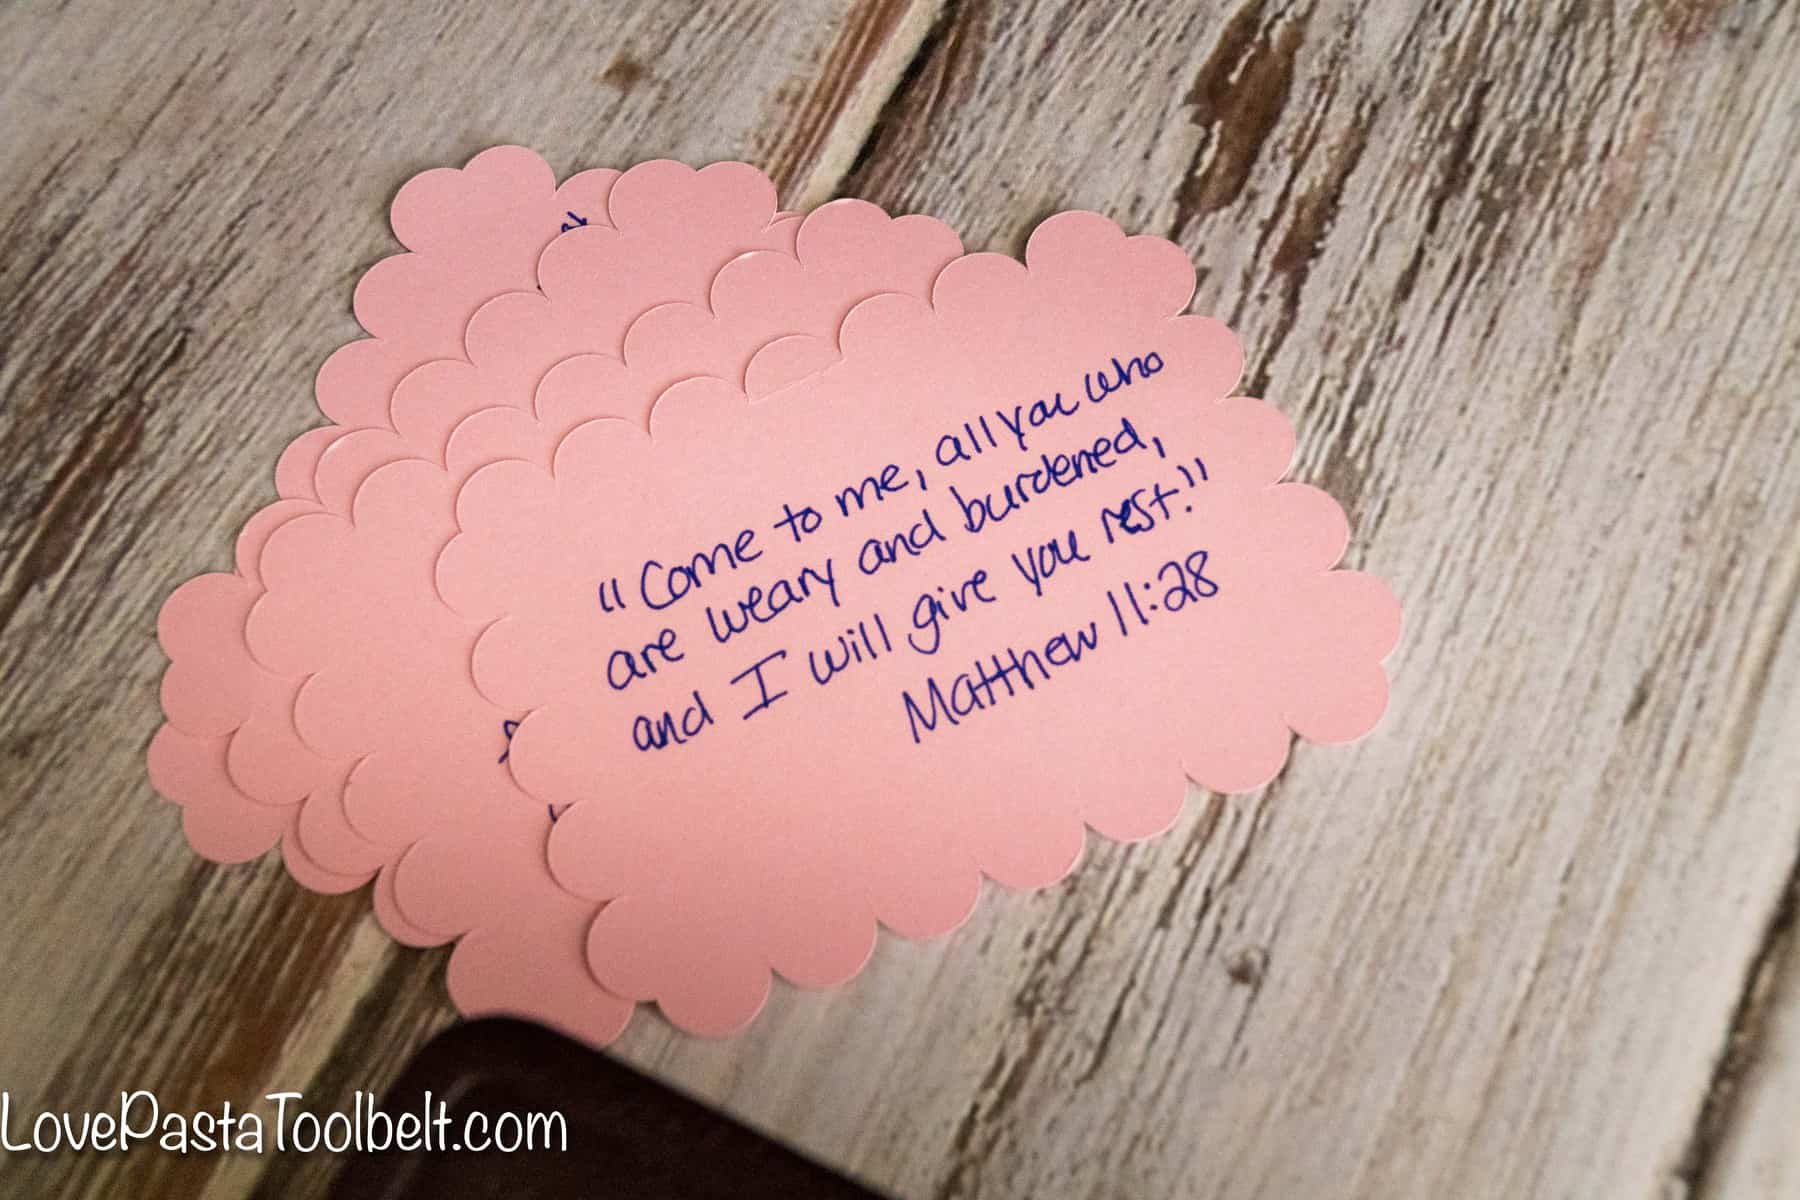 "Come to me, all you who
are weary and burdened,
and I will give you rest."
Matthew 11:28
LovePastaToolbelt.com